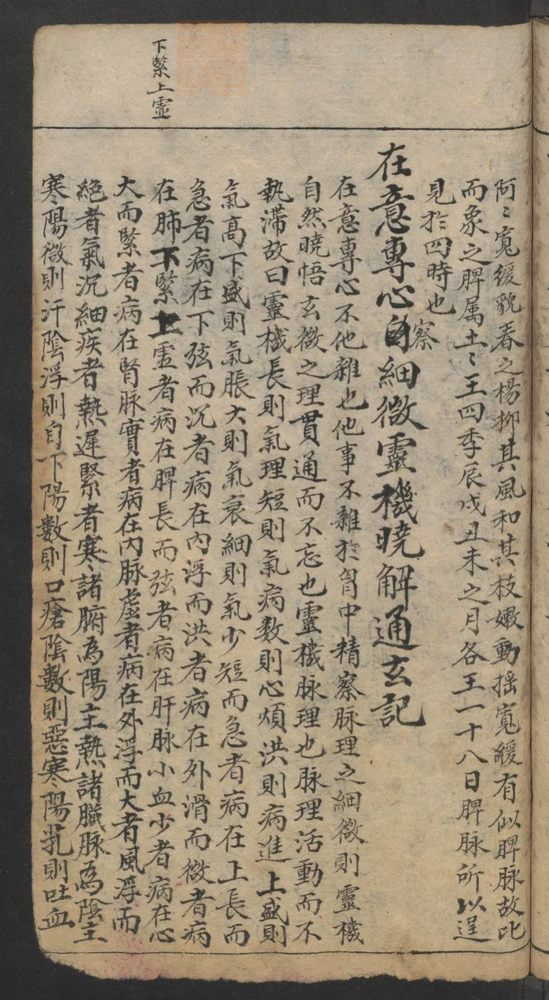 阿〻寬緩貌春之楊柳其風和其枝嫩動揺寬緩有似脾脉故比
而象之脾属土〻王四季辰戌丑未之月各王一十八日脾脉所以逞
見於四時也
在意專心察細微靈機曉解通玄記
在意專心不他雜也他事不雜於胷中精察脉理之細微則靈機
自然曉悟玄微之理貫通而不忘也靈機脉理也脉理活動而不
執滯故曰靈機長則氣理短則氣病数則心煩洪則病進上盛則
氣髙下盛則氣脹大則氣衰細則氣少短而急者病在上長而
急者病在下弦而沉者病在内浮而洪者病在外滑而微者病
在肺下緊上虛者病在脾長而弦者病在肝脉小血少者病在心
大而緊者病在腎脉實者病在内脉虛者病在外浮而大者風浮而
絕者氣沉細疾者熱遲緊者寒諸腑為陽主熱諸臟脉為陰主
寒陽微則汗陰浮則自下陽數則口瘡陰數則惡寒陽芤則吐血
下緊上虛